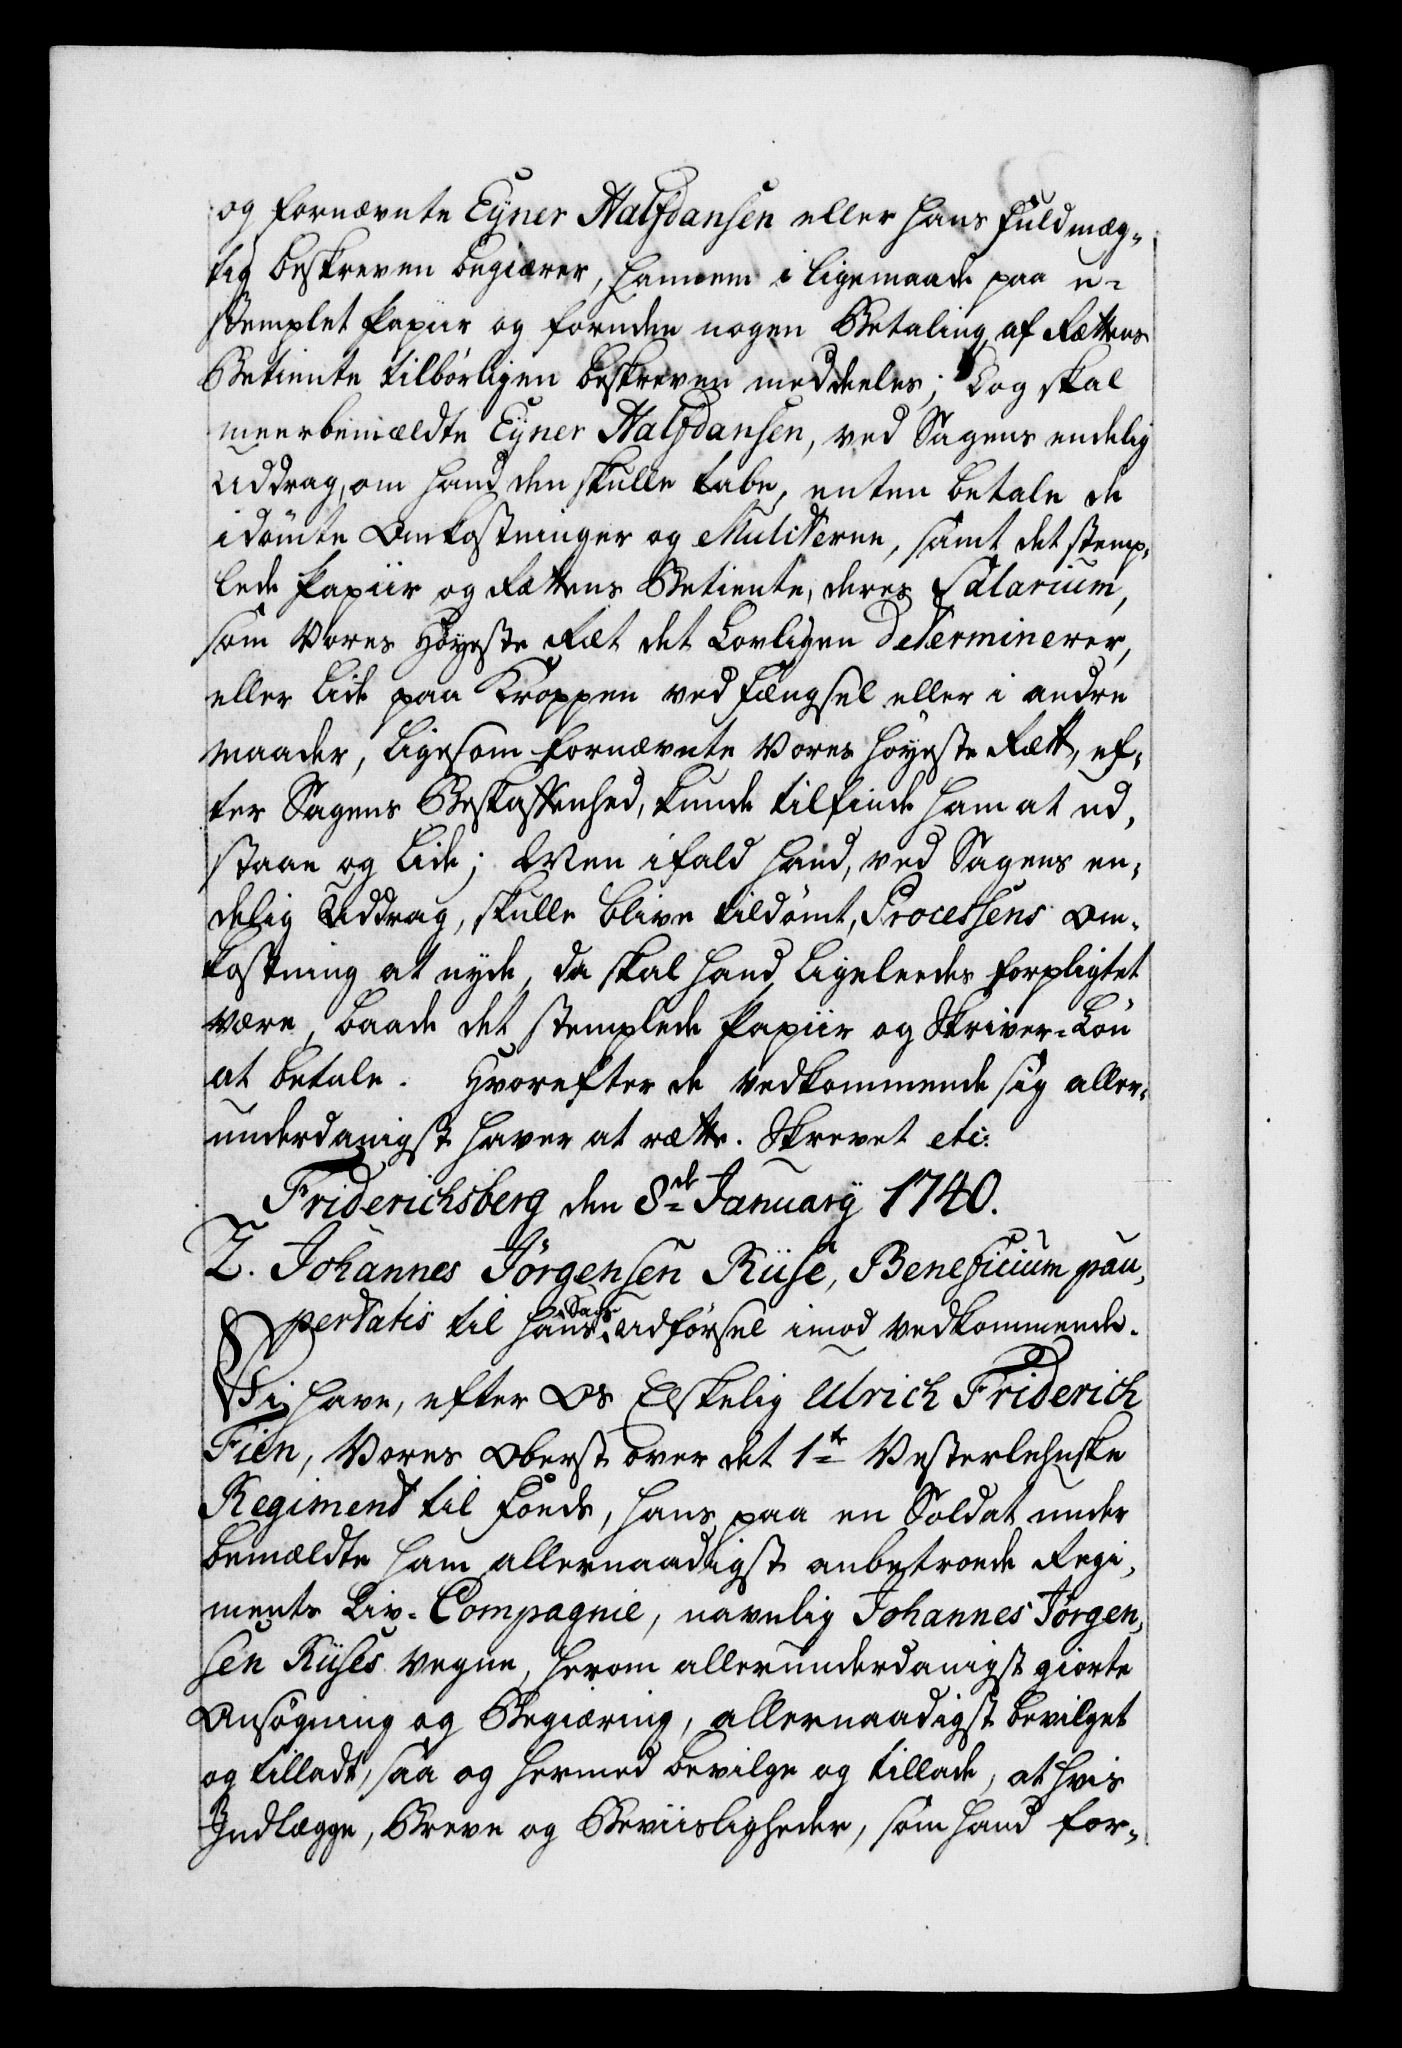 og fornævnte Eÿner Halfdansen eller hans Fuldmæg-
tig beskreven begiærer, hannem i ligemaade paa u-
stemplet Papiir og foruden nogen Betaling af Rættens
Betiente tilbørligen beskreven meddeeles; Dog skal
meerbemældte Eÿner Halfdansen, ved Sagens endelig
Uddrag, om hand den skulle tabe, enten betale de
idømte Omkostninger og Mulcterne, samt det stemp-
lede Papiir og Rættens Betiente, deres Salarium,
som Vores Høyeste Ræt det Lovligen determinerer,
eller lide paa Kroppen ved Fængsel eller i andre
maader, ligesom fornævnte Vores høyeste Rætt, ef-
ter Sagens Beskaffenhed, kunde tilfinde ham at ud-
staae og lide; Men ifald hand, ved Sagens en-
delig Uddrag, skulle blive tildømt, Processens Om-
kostning at nyde, da skal hand ligeleedes forpligtet
være, baade det stemplede Papiir og Skriver-Løn
at betale. Hvorefter de vedkommende sig aller-
underdanigst haver at rætte. Skrevet etc:
Friderichsberg den 8de Januarÿ 1740.
2. Johannes Jörgensen Riise, Beneficium pau-
pertatis til hans Sags Udførsel imod vedkommende.
Vi have, efter Os Elskelig Ulrich Friderich
Fien, Vores Oberst over det 1te Vesterlehnske
Regiment til Fods, hans paa en Soldat under
bemældte ham allernaadigst anbetroede Regi-
ments Liv-Compagnie, navnlig Johannes Jörgen-
sen Riises Vegne, herom allerunderdanigst giorte
Ansøgning og Begiæring, allernaadigst bevilget
og tilladt, saa og hermed bevilge og tillade, at hvis
Indlægge, Breve og Beviisligheder, som hand for-